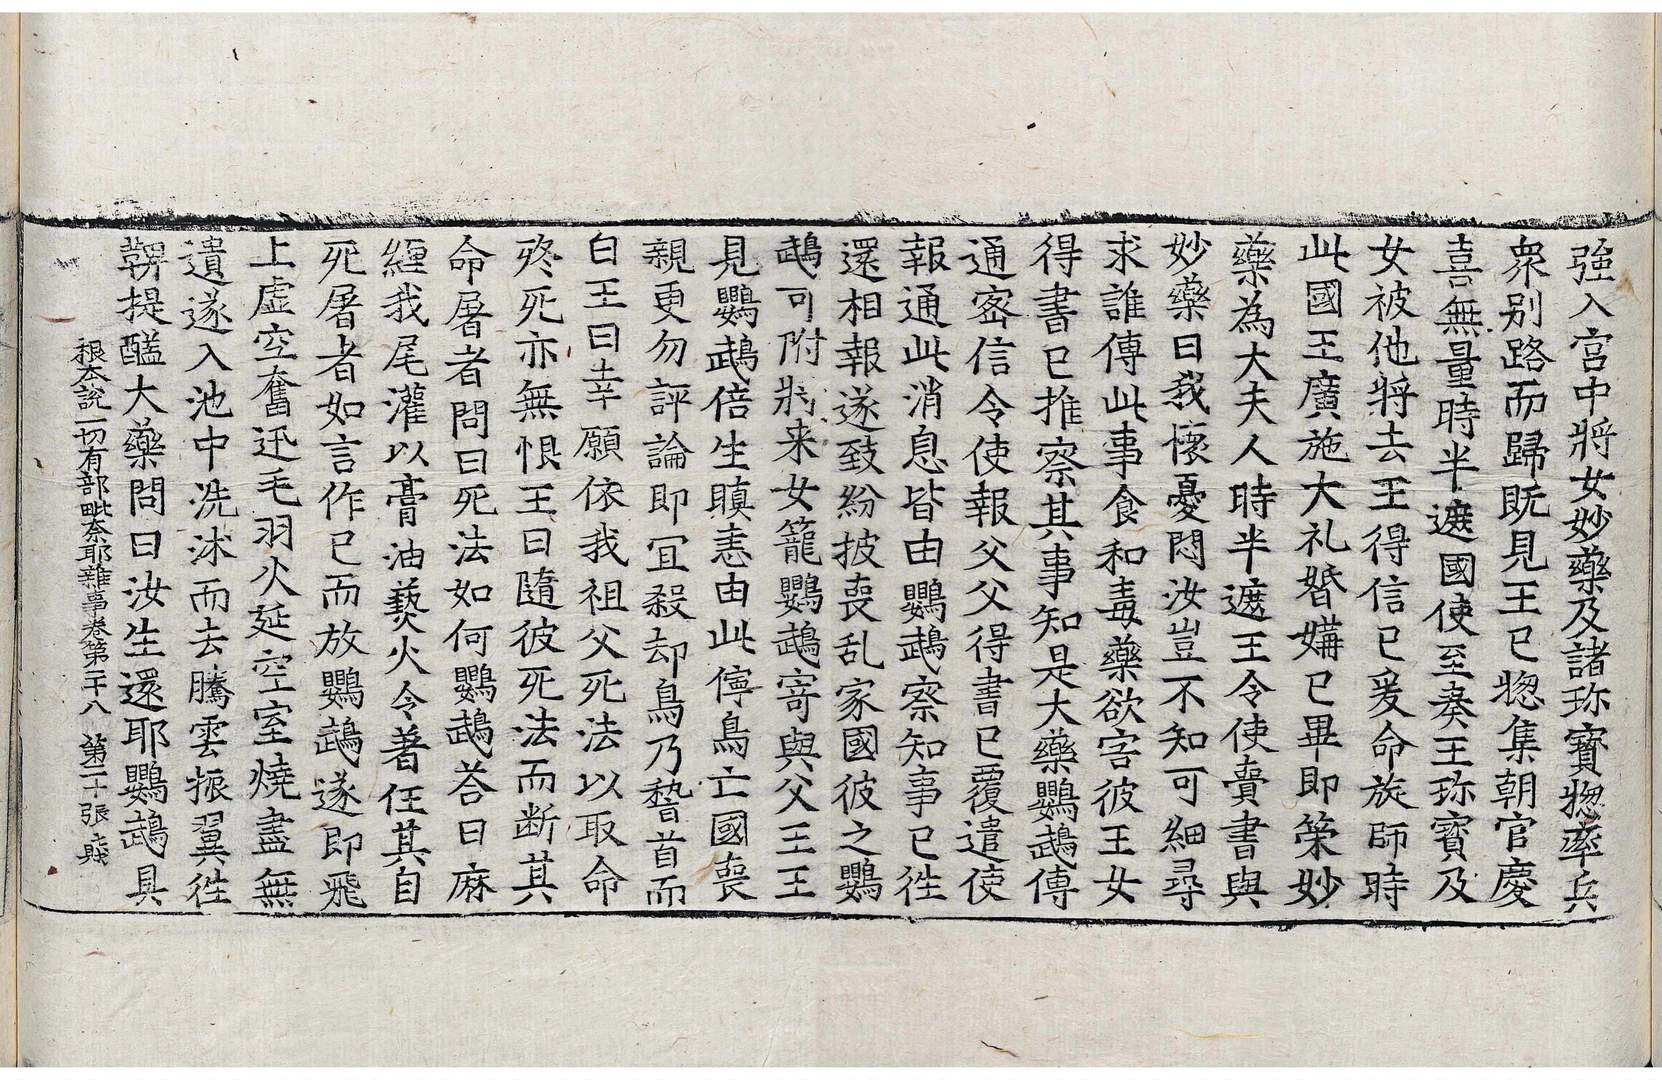 強入宮中將女妙藥及諸珎寶惣率兵
衆別路而歸旣見王已惣集朝官慶
喜無量時半遮國使至奏王珎寶及
女被他將去王得信已爰命旋師時
此國王廣施大礼婚媾已畢即策妙
藥為大夫人時半遮王令使賷書與
妙藥曰我懷憂悶汝豈不知可細尋
求誰傳此事食和毒藥欲害彼王女
得書已推察其事知是大藥鸚鵡傳
通密信令使報父父得書已覆遣使
報通此消息皆由鸚鵡察知事已徃
還相報遂致紛披喪乱家國彼之鸚
鵡可附將来女籠鸚鵡寄與父王王
見鸚鵡倍生瞋恚由此儜鳥亡國喪
親更勿評論即冝殺却鳥乃䭫首而
白王曰幸願依我祖父死法以取命
終死亦無恨王曰隨彼死法而断其
命屠者問曰死法如何鸚鵡荅曰麻
纏我尾灌以膏油爇火令著任其自
死屠者如言作已而放鸚鵡遂即飛
上虛空奮迅毛羽火延空室燒盡無
遺遂入池中洗沐而去騰雲振翼徃
鞞提醯大藥問曰汝生還耶鸚鵡具
根本說一切有部毗奈耶雜事卷第二十八 第二十張 賤